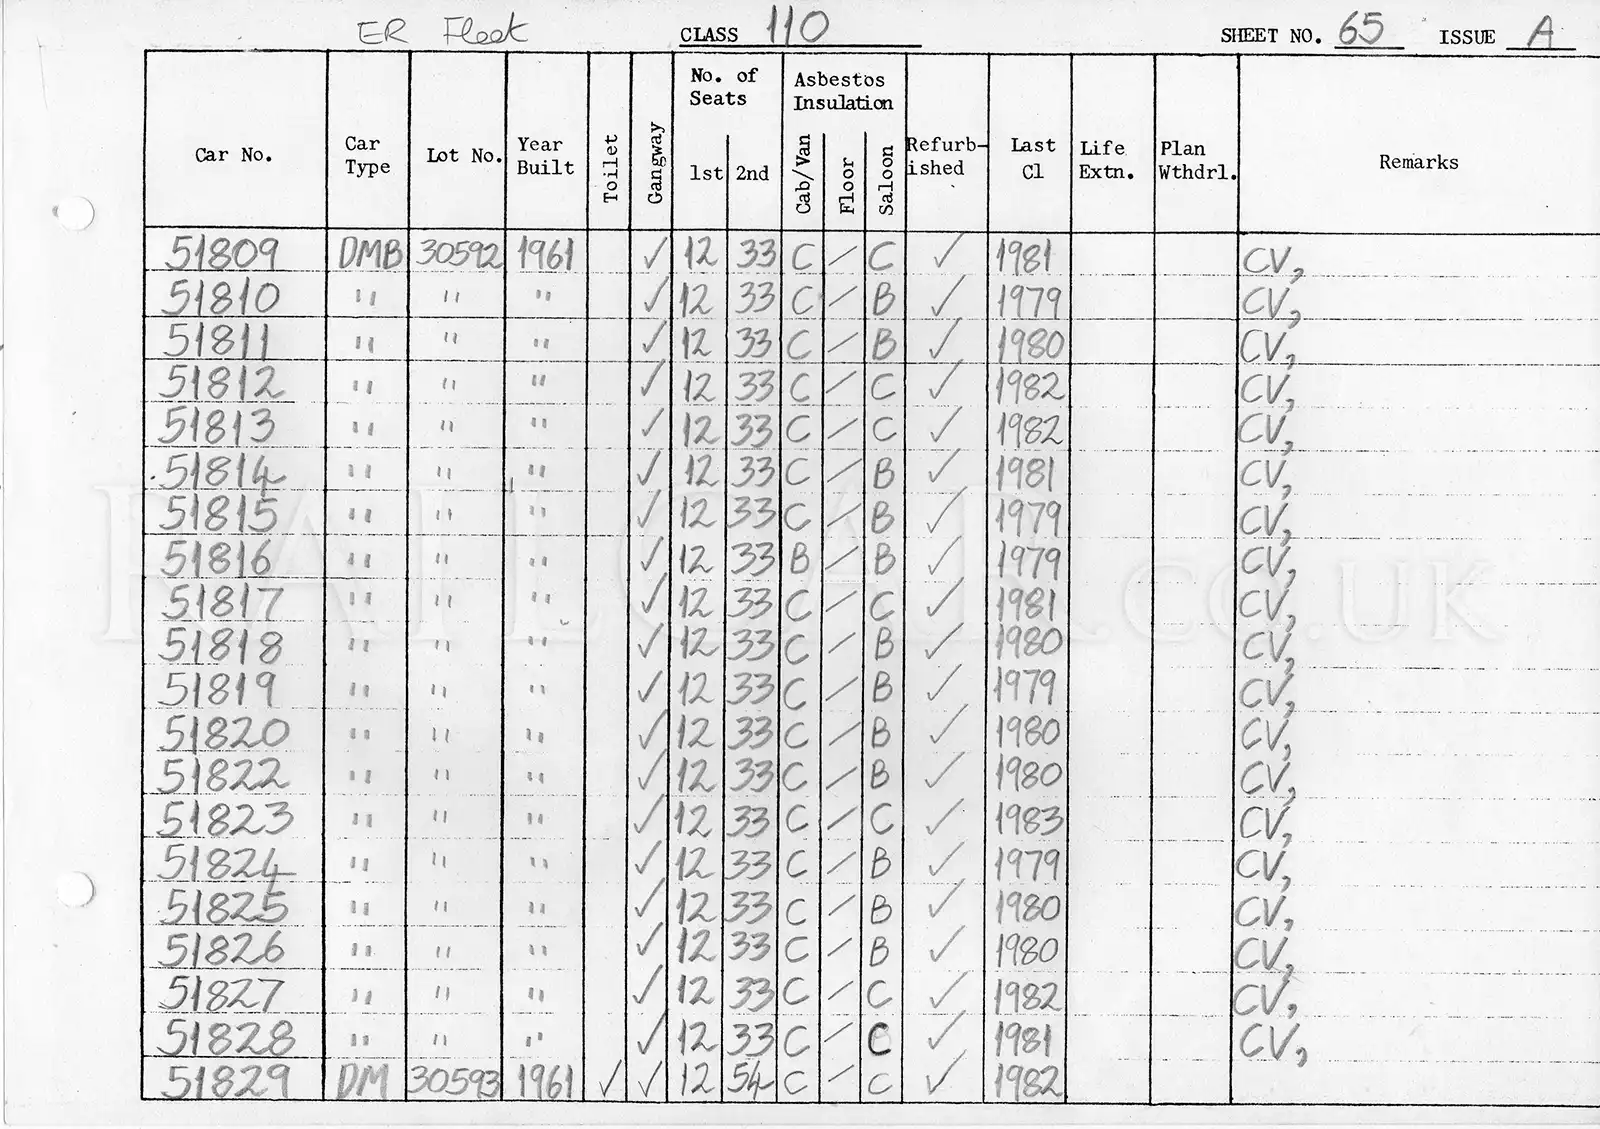 ER Fleet CLASS 110 SHEET NO. 65 ISSUE A
Car No. Car Type Lot No. Year Built Toilet Gangway No. of Seats 1st 2nd Asbestos Insulation Cab/Van Floor Saloon Refurb-ished Last Cl Life Extn. Plan Wthdrl. Remarks
51809 DMB 30592 1961 ✓ 12 33 C / C ✓ 1981 CV,
51810 " " " ✓ 12 33 C / B ✓ 1979 CV,
51811 " " " ✓ 12 33 C / B ✓ 1980 CV,
51812 " " " ✓ 12 33 C / C ✓ 1982 CV,
51813 " " " ✓ 12 33 C / C ✓ 1982 CV,
51814 " " " ✓ 12 33 C / B ✓ 1981 CV,
51815 " " " ✓ 12 33 C / B ✓ 1979 CV,
51816 " " " ✓ 12 33 B / B ✓ 1979 CV,
51817 " " " ✓ 12 33 C / C ✓ 1981 CV,
51818 " " " ✓ 12 33 C / B ✓ 1980 CV,
51819 " " " ✓ 12 33 C / B ✓ 1979 CV,
51820 " " " ✓ 12 33 C / B ✓ 1980 CV,
51822 " " " ✓ 12 33 C / B ✓ 1980 CV,
51823 " " " ✓ 12 33 C / C ✓ 1983 CV,
51824 " " " ✓ 12 33 C / B ✓ 1979 CV,
51825 " " " ✓ 12 33 C / B ✓ 1980 CV,
51826 " " " ✓ 12 33 C / B ✓ 1980 CV,
51827 " " " ✓ 12 33 C / C ✓ 1982 CV,
51828 " " " ✓ 12 33 C / C ✓ 1981 CV,
51829 DM 30593 1961 ✓ ✓ 12 54 C / C ✓ 1982
RAILCAR.CO.UK